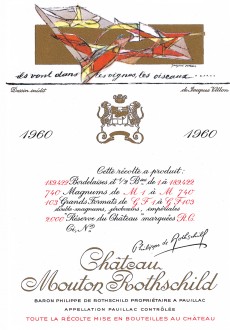 ils vont dans les vignes, les oiseaux
Dessin inédit de Jacques Villon
1960 1960
Cette récolte a produit :
189422 Bordelaises et 1/2 Bses de 1 à 189422
740 Magnums de M 1 à M 740
103 Grands Formats de G F 1 à G F 103
double-magnums, jéroboams, impériales
2000 "Réserve du Château" marquées R.C.
Ci, No.
Philippe de Rothschild
Château
Mouton Rothschild
BARON PHILIPPE DE ROTHSCHILD PROPRIÉTAIRE A PAUILLAC
APPELLATION PAUILLAC CONTRÔLÉE
TOUTE LA RÉCOLTE MISE EN BOUTEILLES AU CHÂTEAU